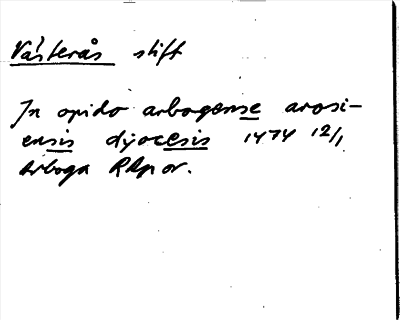 Västerås stift
In opido arbogense arosi-
ensis dyocesis 1474 12/1
Arboga RApor.